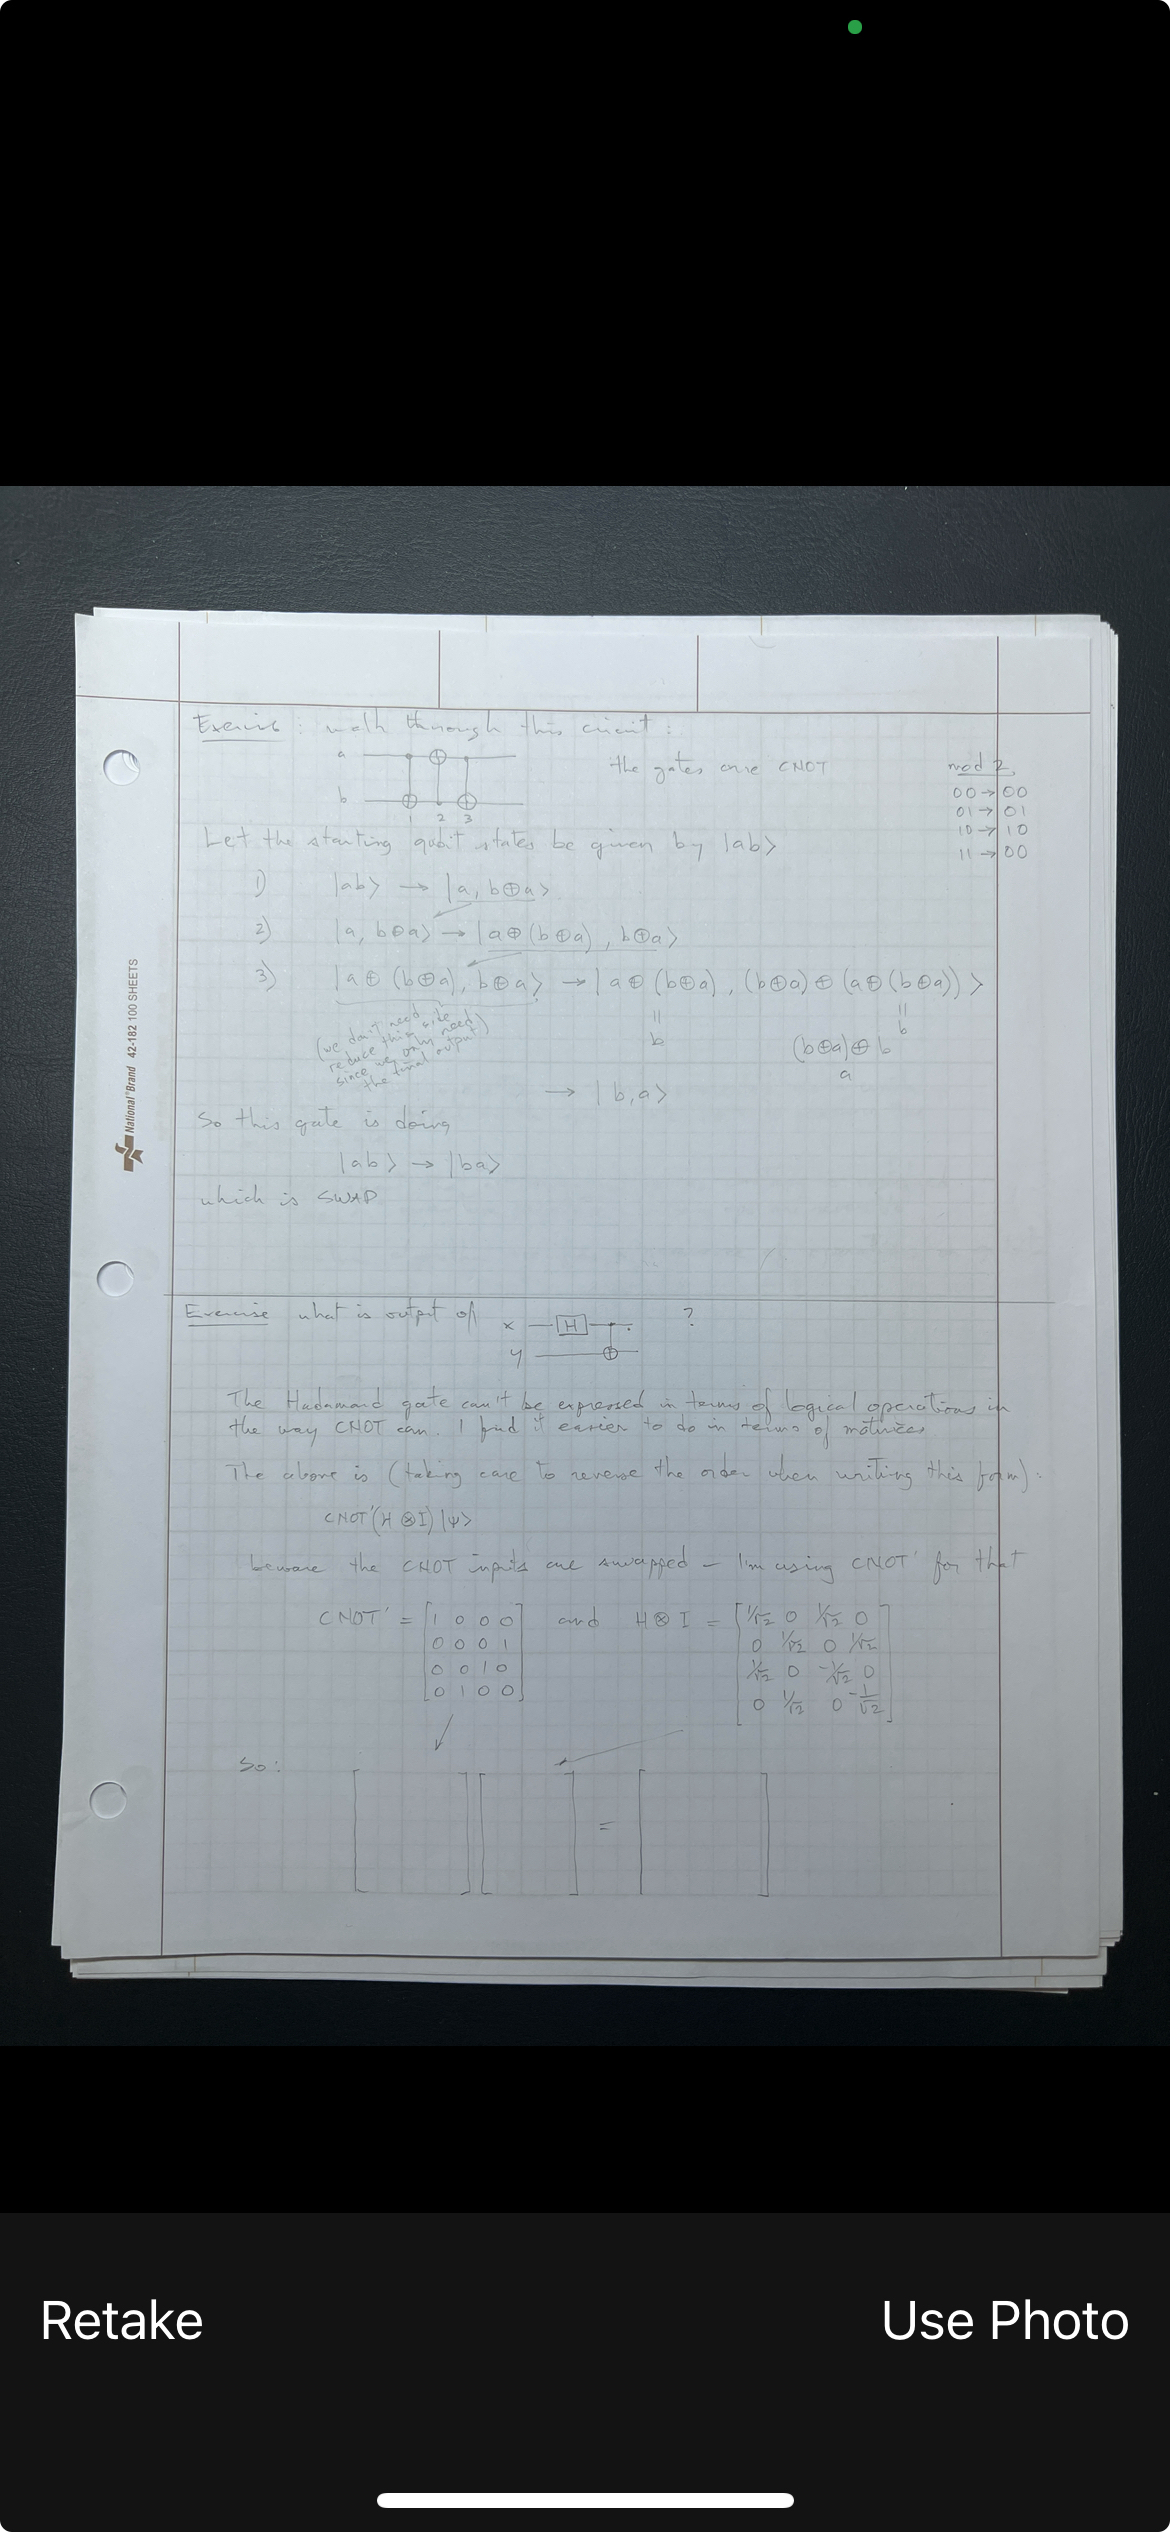 Exercise: walk through this circuit:
a
the gates are CNOT
mod 2
00 → 00
b
01 → 01
1 2 3
10 → 10
Let the starting qubit states be given by |ab>
11 → 00
1) |ab> → |a, b⊕a>
2) |a, b⊕a> → |a⊕(b⊕a), b⊕a>
3) |a⊕(b⊕a), b⊕a> → |a⊕(b⊕a), (b⊕a)⊕(a⊕(b⊕a))>
(we don't need
reduce this side
since we only need
the final output)
= b
= b
(b⊕a)⊕b
a
→ |b,a>
So this gate is doing
|ab> → |ba>
which is SWAP
National®Brand 42-182 100 SHEETS
Exercise what is output of x H ?
y
The Hadamard gate can't be expressed in terms of logical operations in
the way CNOT can. I find it easier to do in terms of matrices
The above is (taking care to reverse the order when writing this form):
CNOT'(H⊗I)|ψ>
beware the CNOT inputs are swapped – I'm using CNOT' for that
CNOT' = [1 0 0 0 and H⊗I = [1/√2 0 1/√2 0
0 0 0 1 0 1/√2 0 1/√2
0 0 1 0 1/√2 0 -1/√2 0
0 1 0 0] 0 1/√2 0 -1/√2]
So:
[ ] [ ] = [ ]
Retake
Use Photo